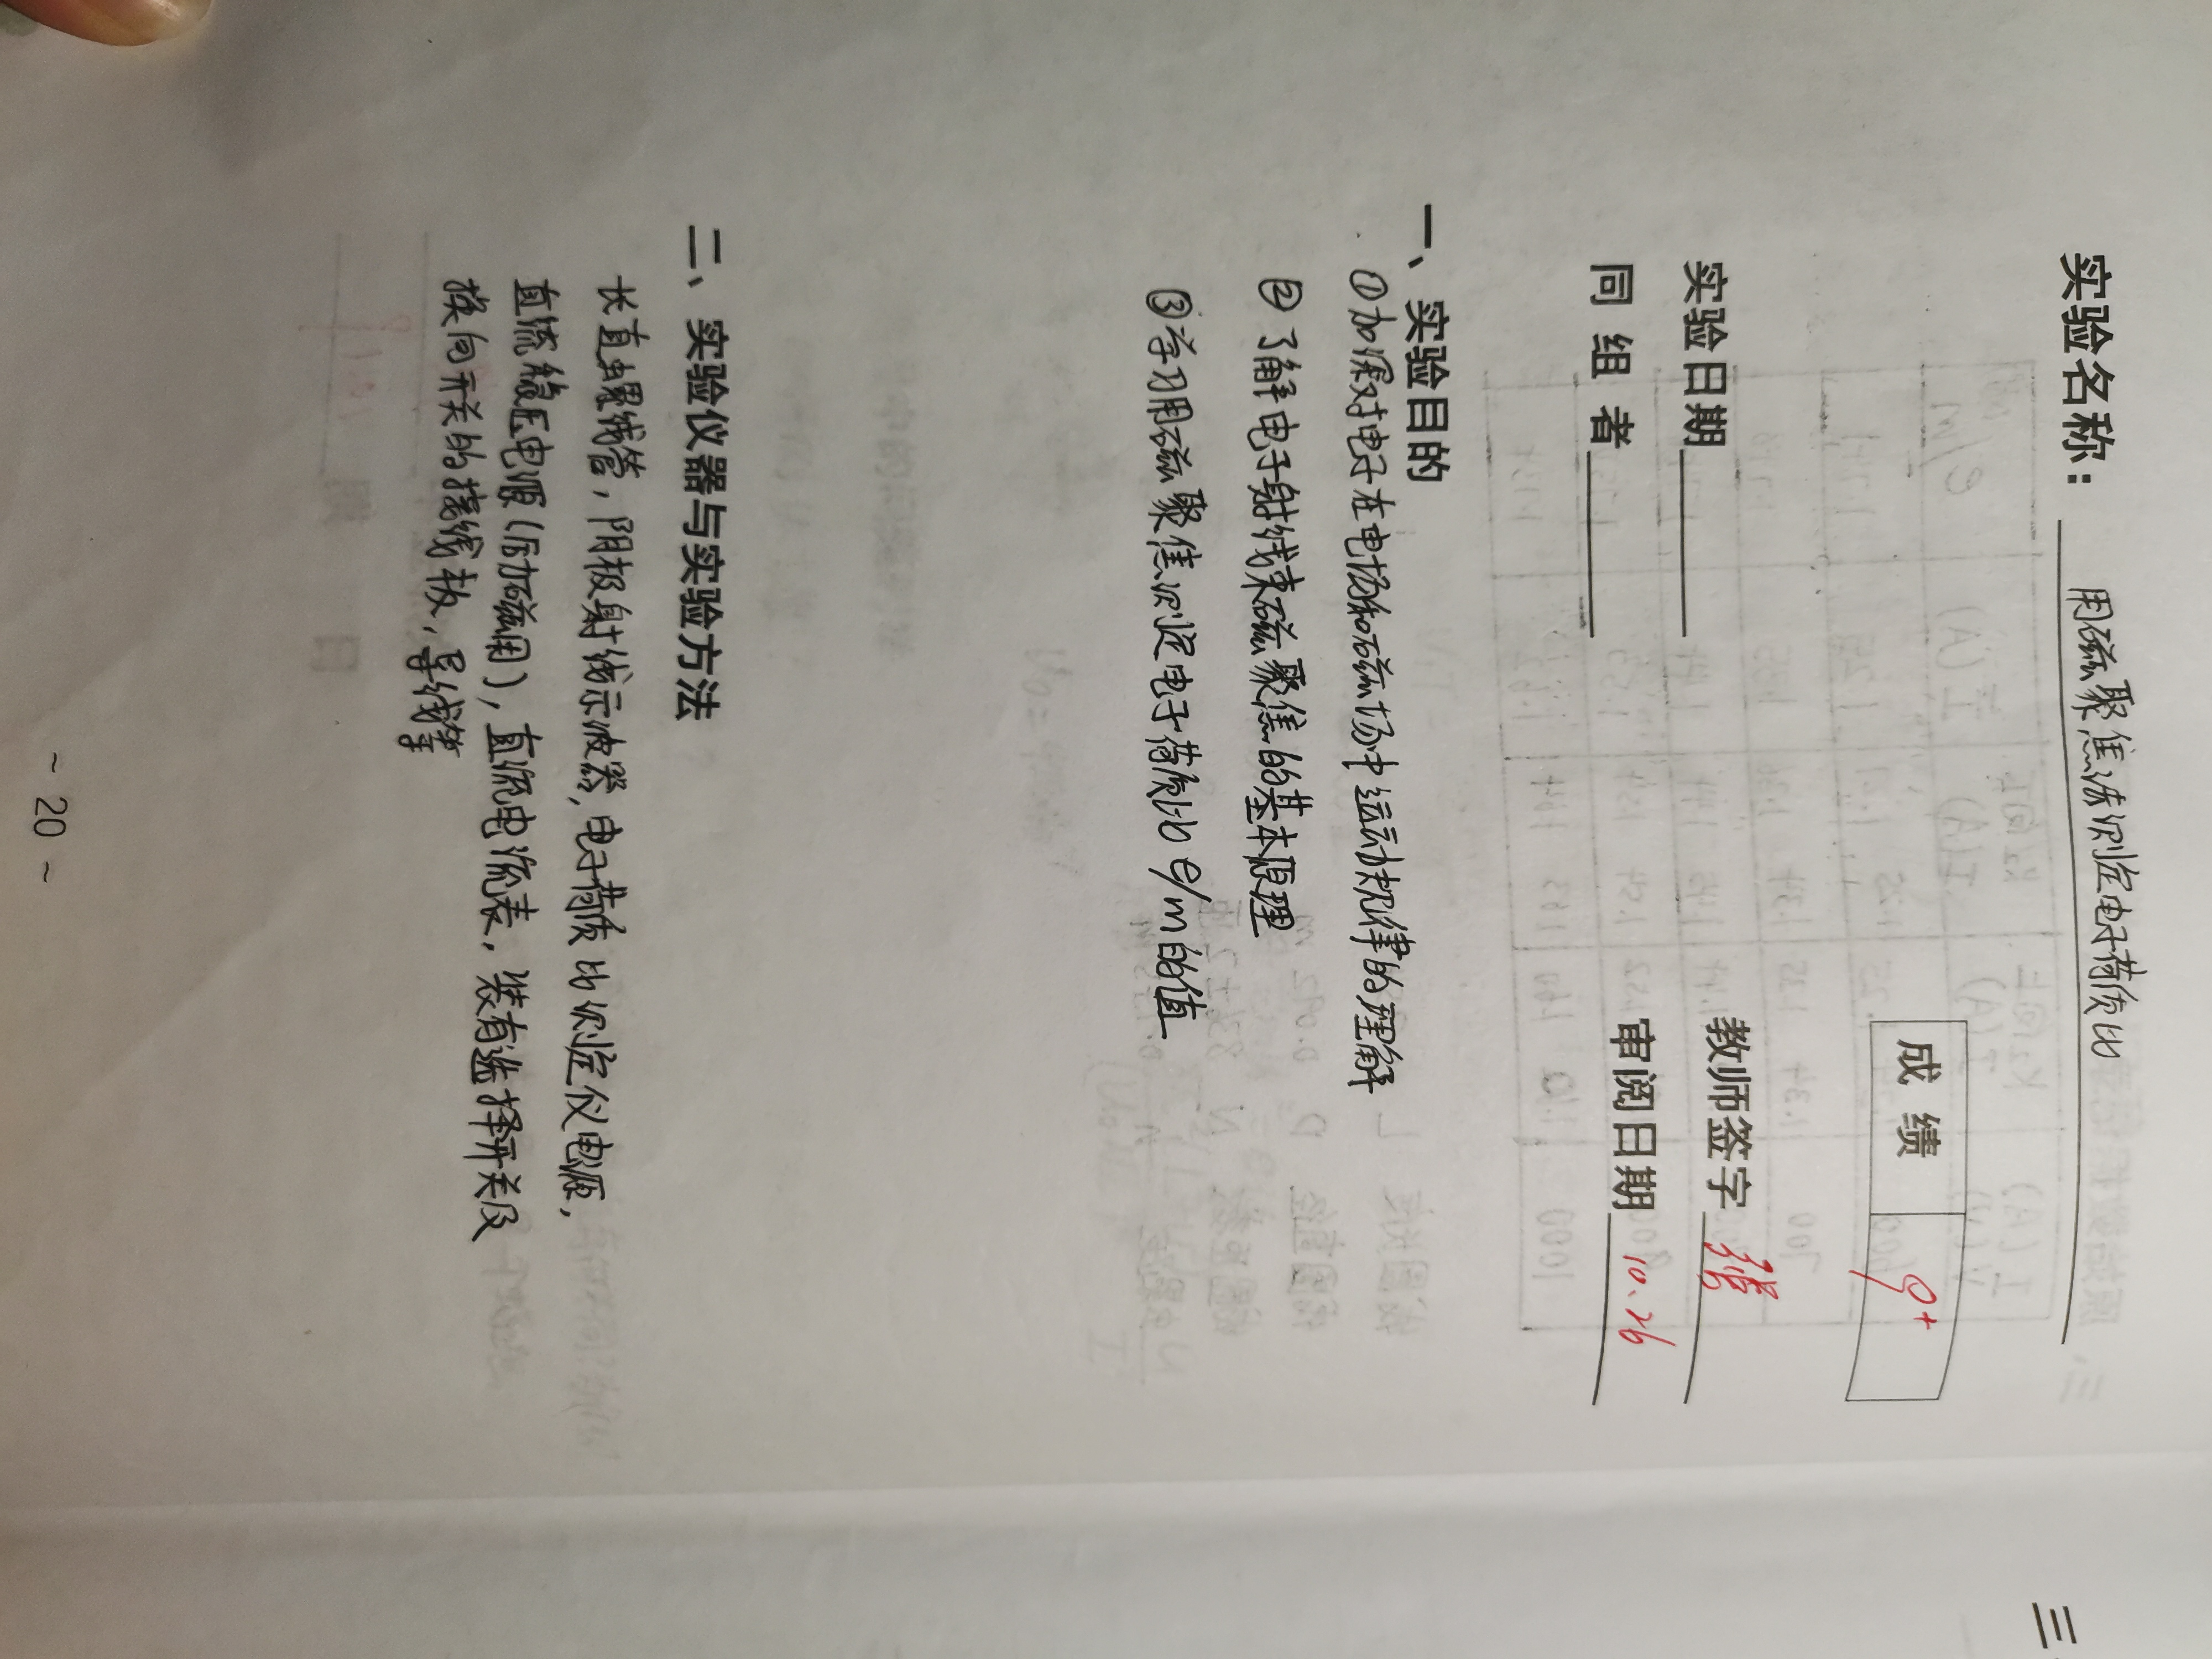 实验名称：用磁聚焦法测定电子荷质比
成绩 9+
实验日期 教师签字
同组者 审阅日期 10.26
一、实验目的
①加深对电子在电场和磁场中运动规律的理解
②了解电子射线束磁聚焦的基本原理
③学习用磁聚焦测定电子荷质比e/m的值
二、实验仪器与实验方法
长直螺线管，阴极射线示波器，电子荷质比测定仪电源，
直流稳压电源(励磁用)，直流电流表，装有选择开关及
换向开关的接线板，导线等
~ 20 ~
三